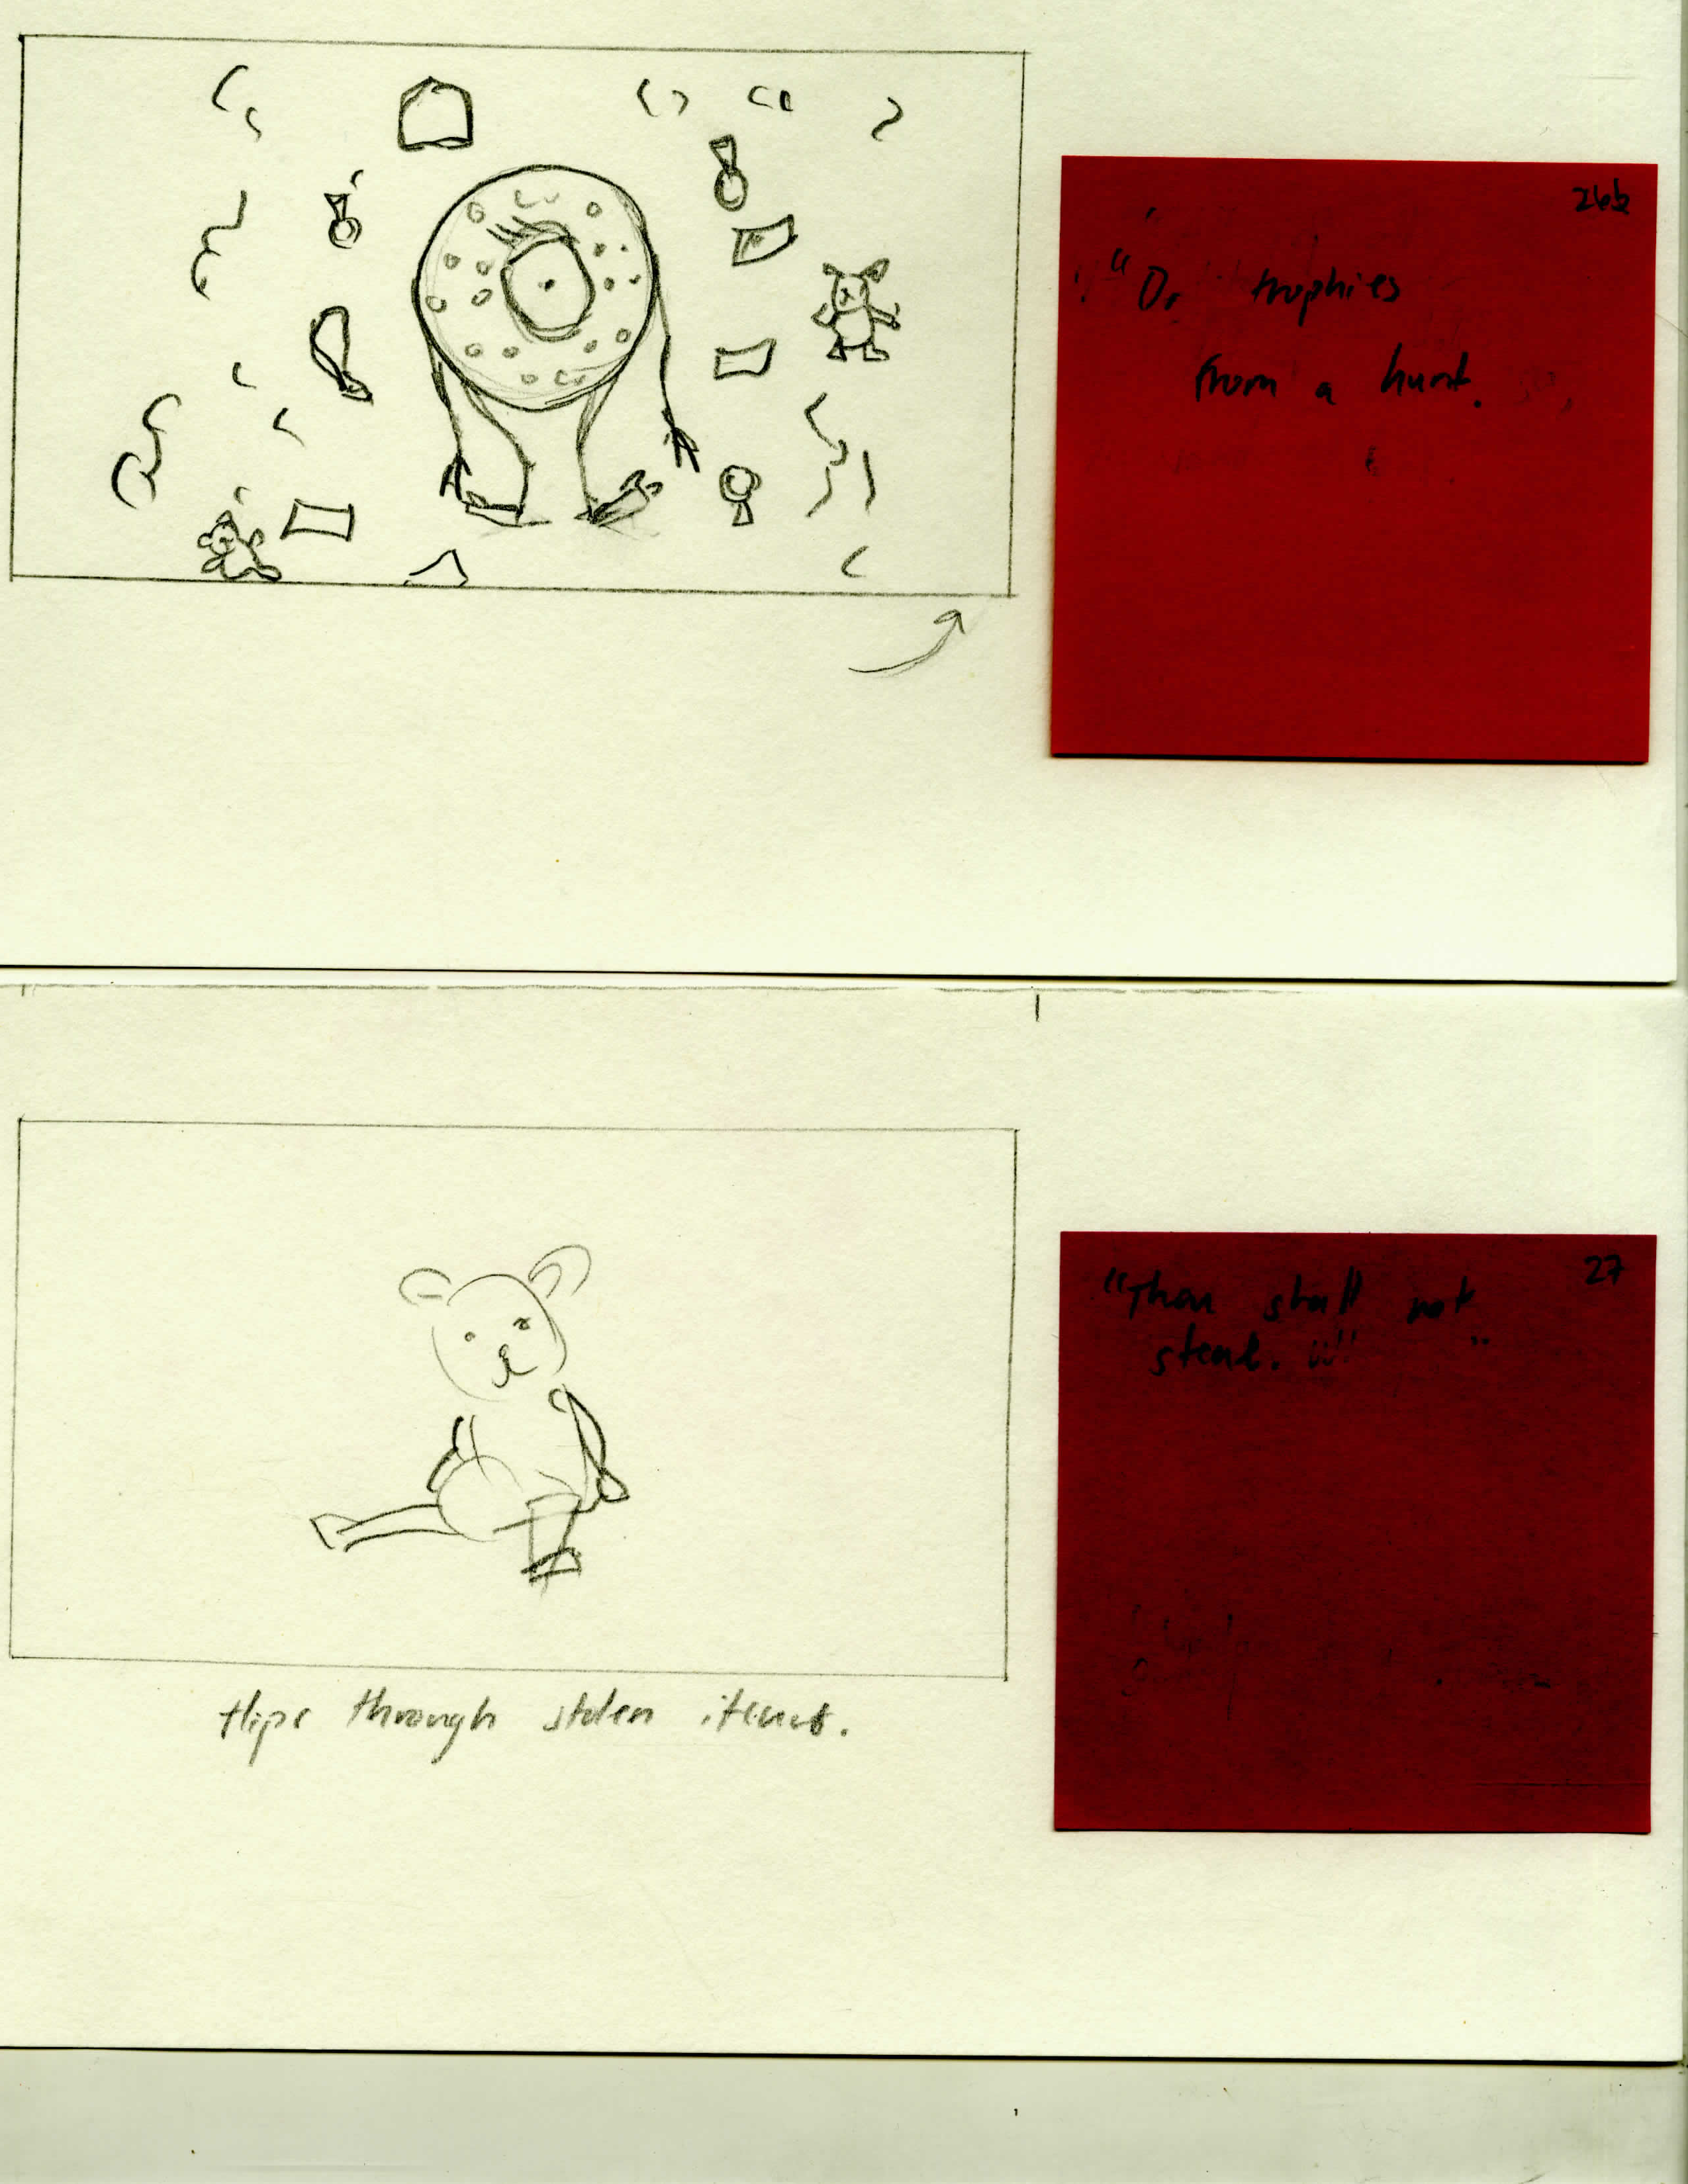 26b
"Or trophies
from a hunt.
27
"Thou shall not
steal. "
flips through stolen items.